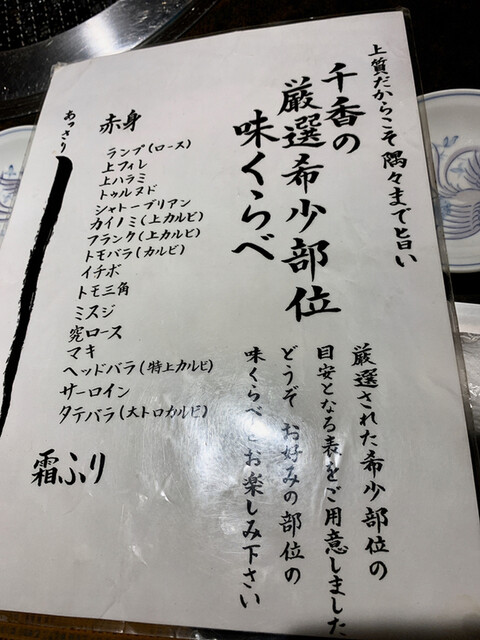 上質だからこそ 隅々まで旨い
千香の
厳選希少部位
味くらべ
厳選された希少部位の
目安となる表をご用意しました
どうぞ お好みの部位の
味くらべをお楽しみ下さい
赤身
あっさり
ランプ(ロース)
上フィレ
上ハラミ
トゥルヌド
シャトーブリアン
カイノミ(上カルビ)
フランク(上カルビ)
トモバラ(カルビ)
イチボ
トモ三角
ミスジ
究ロース
マキ
ヘッドバラ(特上カルビ)
サーロイン
タテバラ(大トロカルビ)
霜ふり